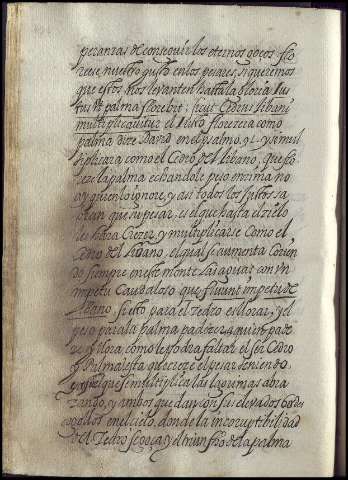 peranzas de conseguir los eternos goços flo
rece nuestro gusto en los pesares, si queremos
que estos nos levanten hasta la gloria Jus
tus ut palma florebit; sicut Cedrus Libani
multiplicabitur el Justo florecera como
palma dize David en el psalmo, 91. y se mul
tiplicara como el Cedro del Libano, que flo
rece la palma echandole peso encima no
ay quien lo ignore, y asi todos los justos sa
bran que su pesar, es el que hasta el zielo
les hara Crezer, y multiplicarse como el
Cedro del Libano, el qual se aumenta Corien
do siempre en este monte las aguas con un
impetu Caudaloso que fluunt impetu de
Libano, si esto para el Zedro es llorar, y el
peso para la palma padezer, quien pade
ze y llora como le podra faltar el ser Cedro
y Palma esta que creze el pesar teniendo
que se multiplica las lagrimas abra
zando, y ambos que dan con sus elevados
cogollos en el cielo, donde la incorruptibilidad
del Zedro se goça, y el triunfho de la palma